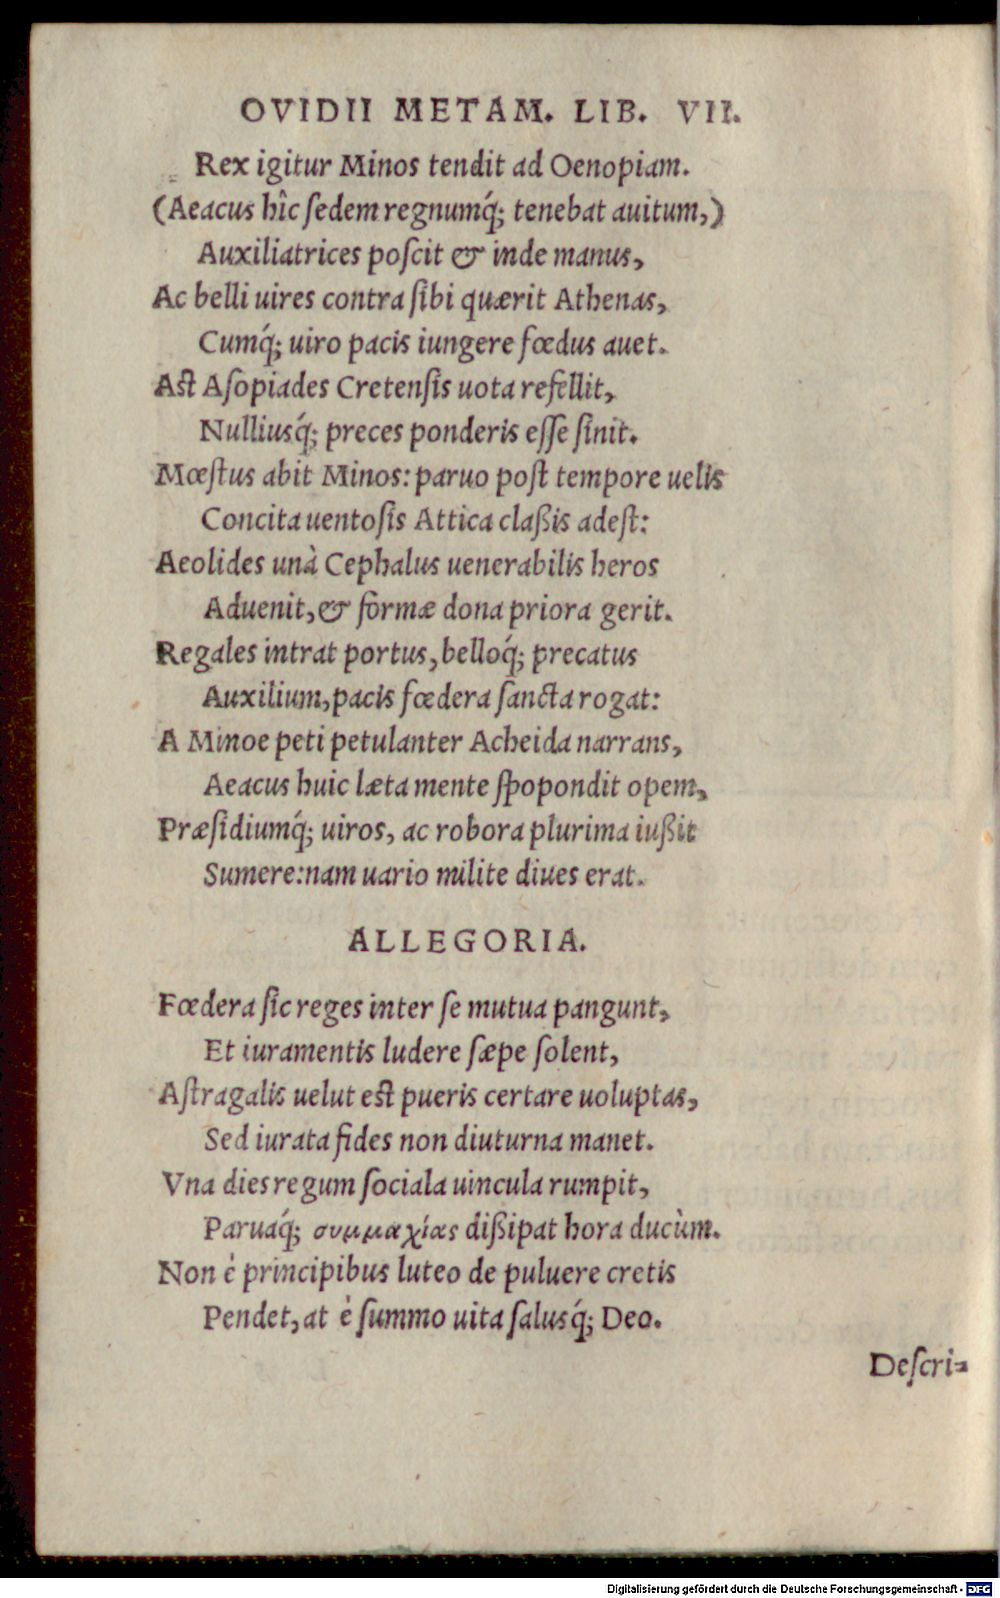 OVIDII METAM. LIB. VII.
Rex igitur Minos tendit ad Oenopiam.
(Aeacus hîc ſedem regnumq́; tenebat auitum,)
Auxiliatrices poſcit & inde manus,
Ac belli uires contra ſibi quærit Athenas,
Cumq́; uiro pacis iungere fœdus auet.
Aſt Aſopiades Cretenſis uota refellit,
Nulliusq́; preces ponderis eſſe ſinit.
Mœſtus abit Minos: paruo poſt tempore uelis
Concita uentoſis Attica claßis adeſt:
Aeolides unà Cephalus uenerabilis heros
Aduenit, & formæ dona priora gerit.
Regales intrat portus, belloq́; precatus
Auxilium, pacis fœdera ſancta rogat:
A Minoe peti petulanter Acheida narrans,
Aeacus huic læta mente ſpopondit opem,
Præſidiumq́; uiros, ac robora plurima iußit
Sumere: nam uario milite diues erat.
ALLEGORIA.
Fœdera ſic reges inter ſe mutua pangunt,
Et iuramentis ludere ſæpe ſolent,
Aſtragalis uelut eſt pueris certare uoluptas,
Sed iurata fides non diuturna manet.
Vna dies regum ſociala uincula rumpit,
Paruaq́; συμμαχίας dißipat hora ducùm.
Non è principibus luteo de puluere cretis
Pendet, at è ſummo uita ſalusq́; Deo.
Deſcri-
Digitalisierung gefördert durch die Deutsche Forschungsgemeinschaft - DFG